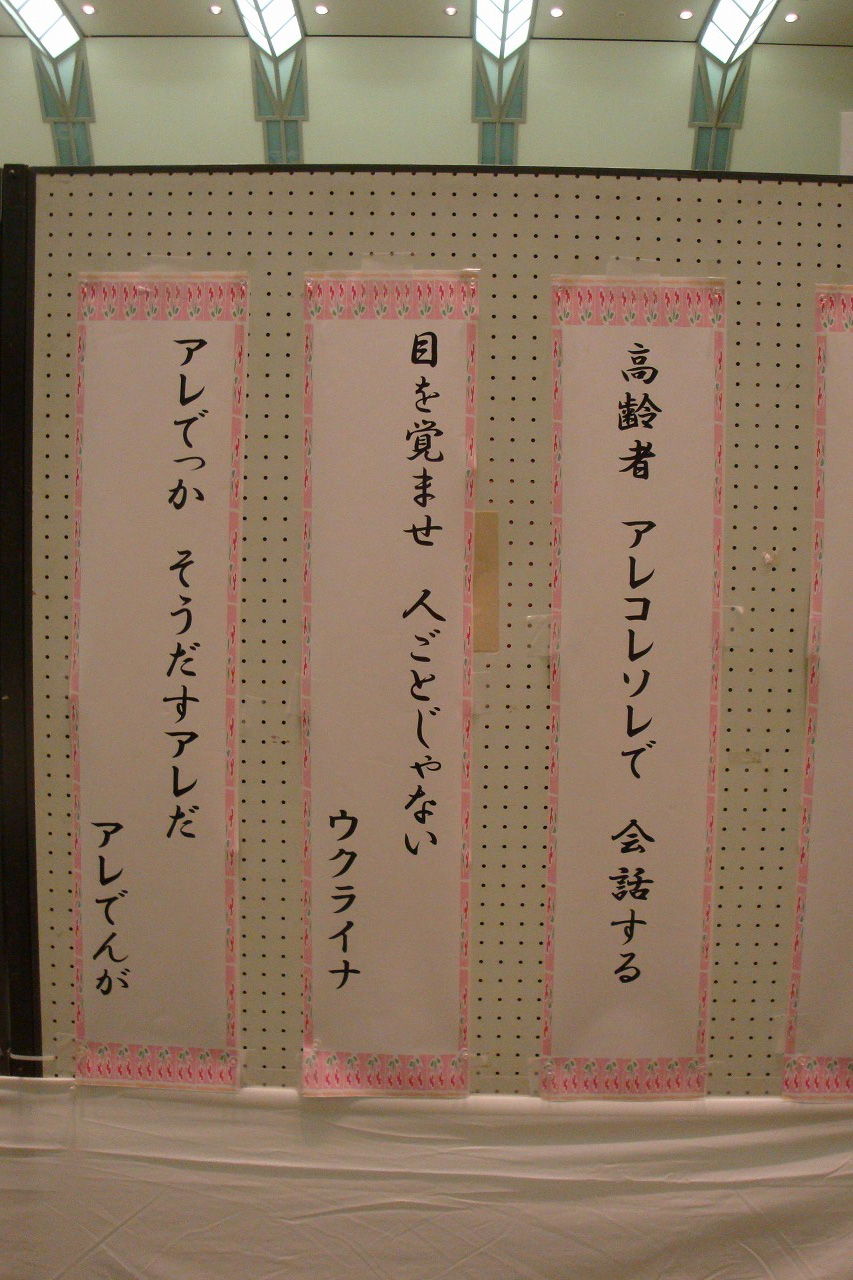 高齢者　アレコレソレで　会話する
目を覚ませ　人ごとじゃない
ウクライナ
アレでっか　そうだすアレだ
アレでんが